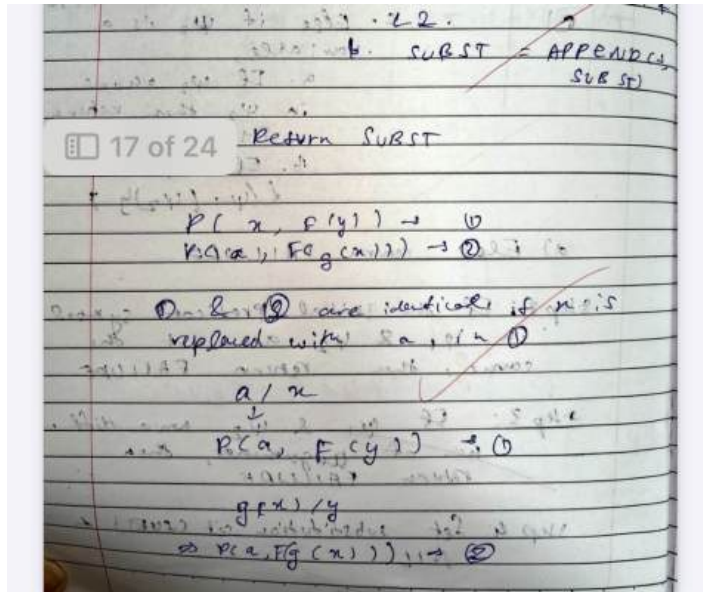 b. SUBST = APPEND(s,
SUBST)
17 of 24
Return SUBST
P( x, F(y)) → ①
P(a, F(g(x))) → ②
① & ② are identical if x is
replaced with a, in ①
a / x
↓
P(a, F(y)) → ①
g(x) / y
⇒ P(a, F(g(x))) → ②